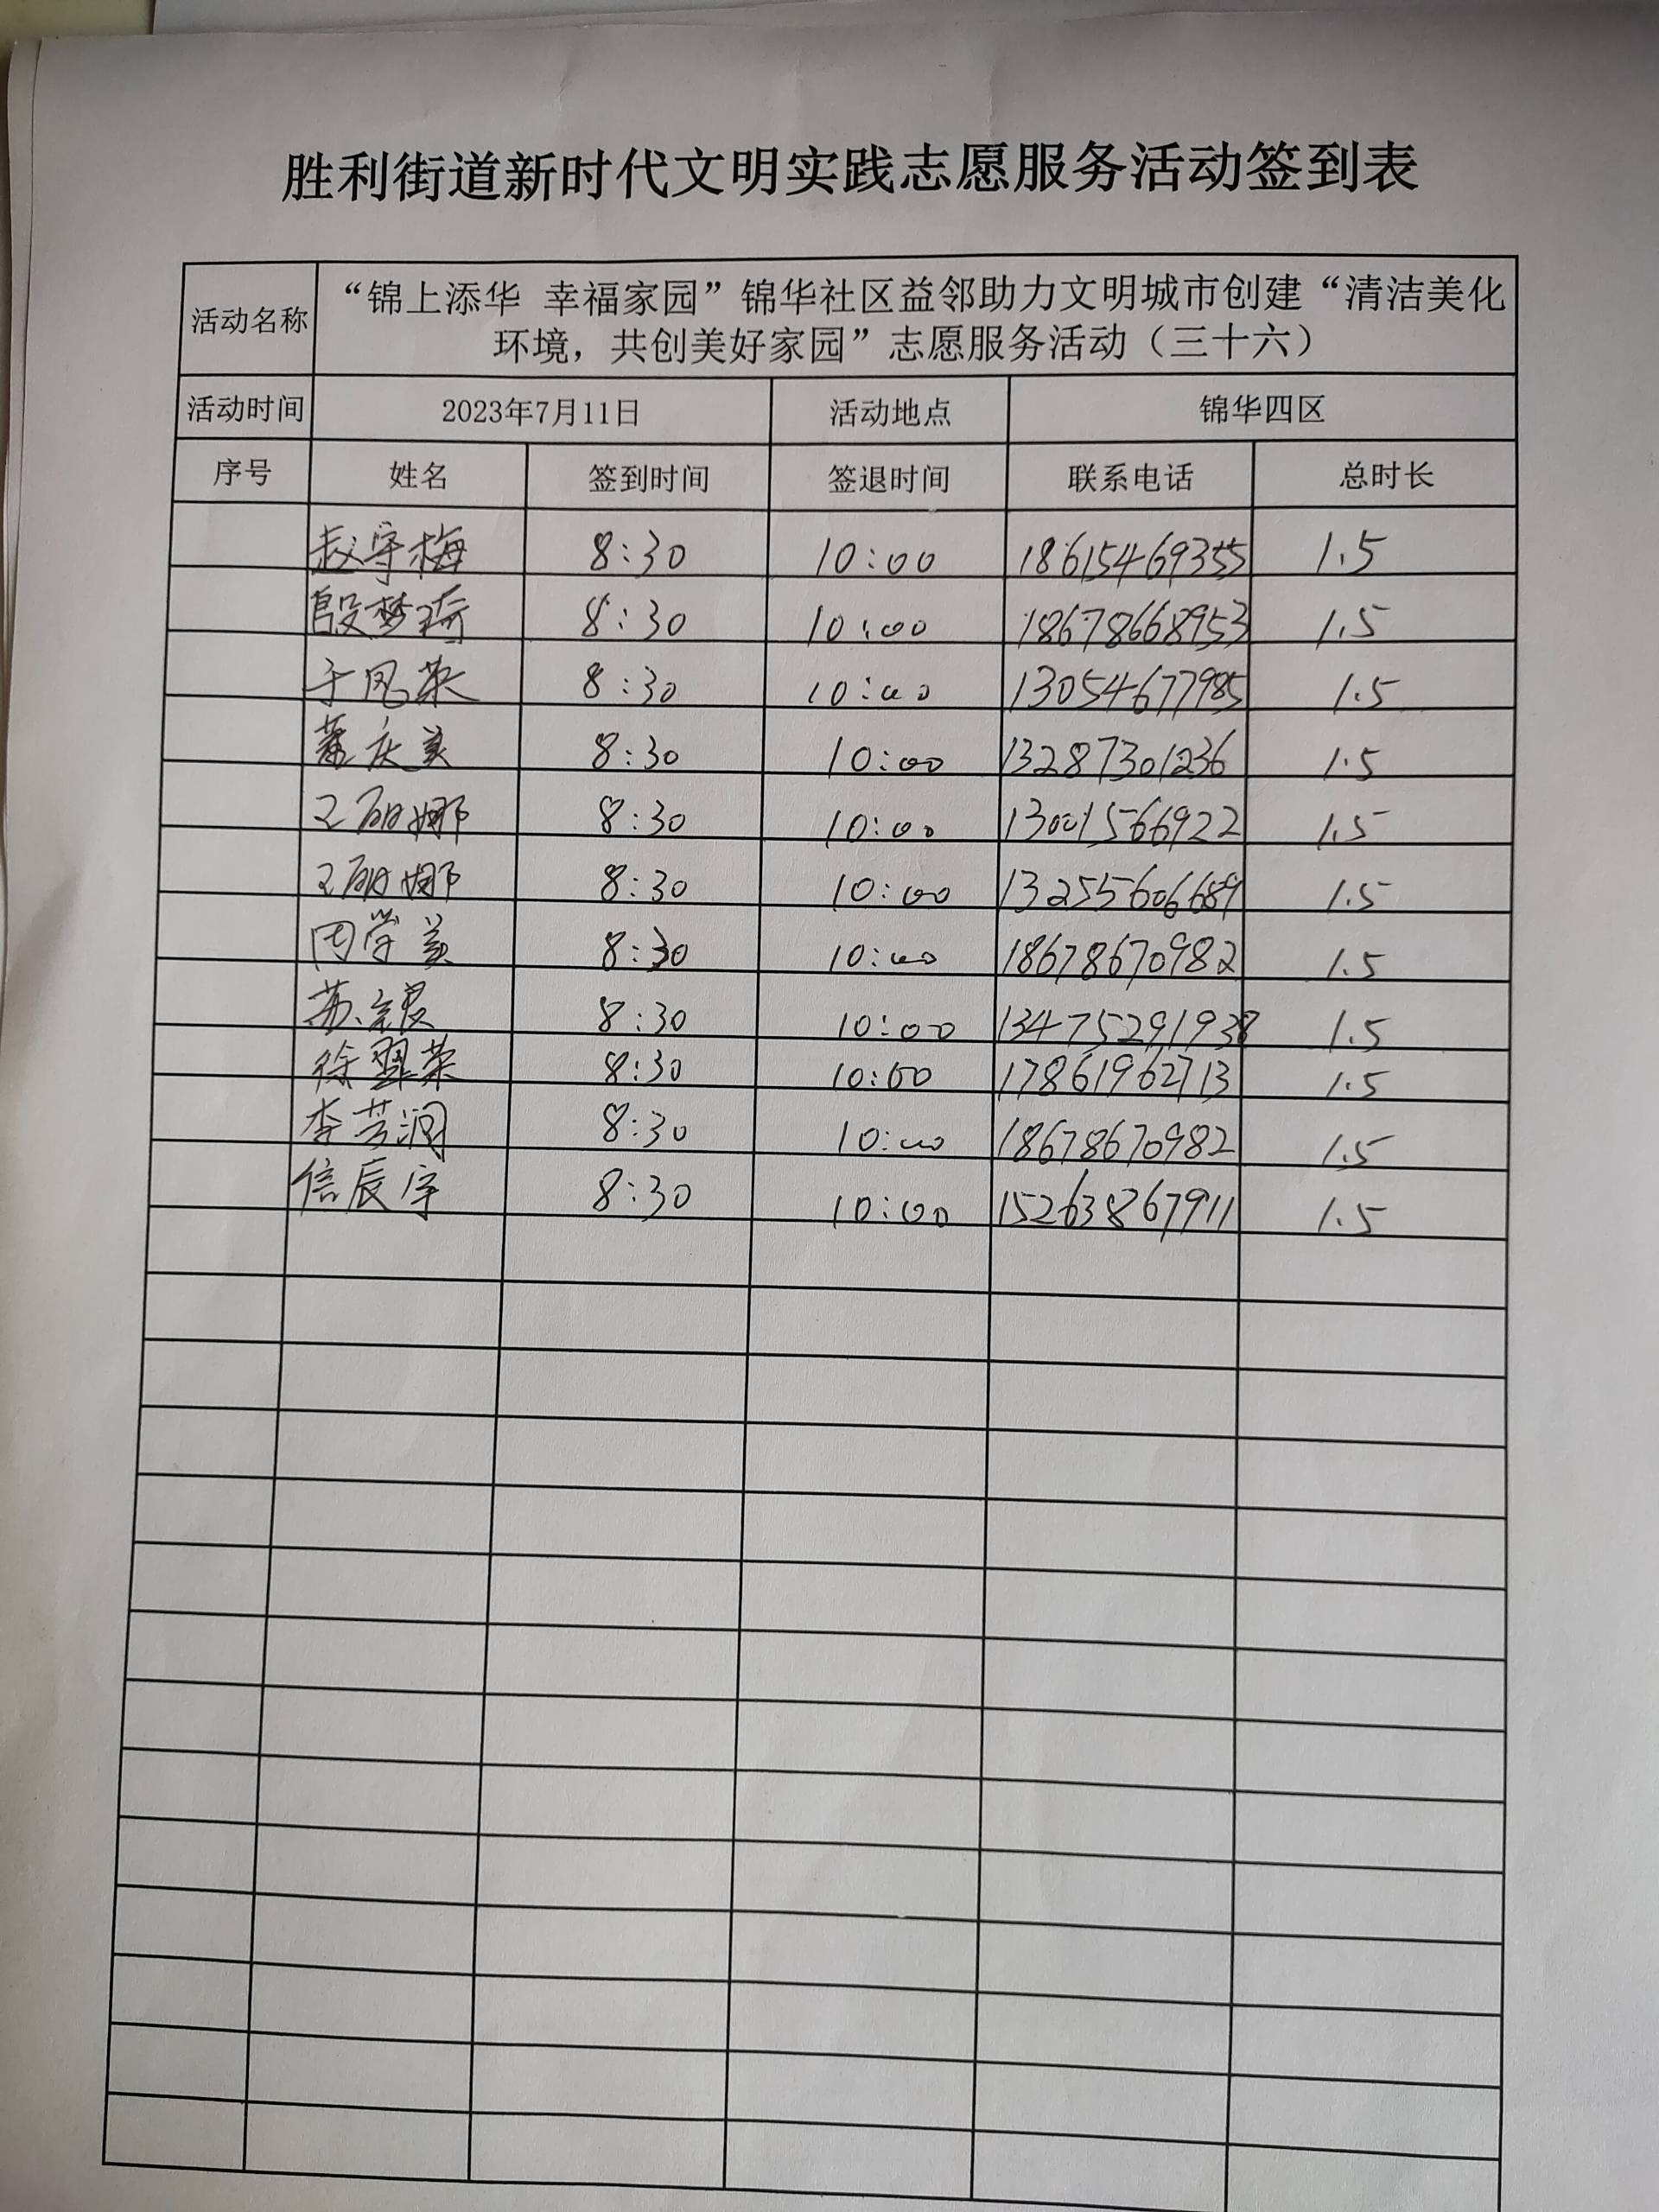 胜利街道新时代文明实践志愿服务活动签到表
活动名称 “锦上添华 幸福家园”锦华社区益邻助力文明城市创建“清洁美化
环境，共创美好家园”志愿服务活动（三十六）
活动时间 2023年7月11日 活动地点 锦华四区
序号 姓名 签到时间 签退时间 联系电话 总时长
赵守梅 8:30 10:00 18615469355 1.5
殷梦琦 8:30 10:00 18678668953 1.5
于凤英 8:30 10:00 13054677985 1.5
董庆美 8:30 10:00 13287301236 1.5
王丽娜 8:30 10:00 13001566922 1.5
王丽娜 8:30 10:00 13255606689 1.5
田学美 8:30 10:00 18678670982 1.5
苏银 8:30 10:00 13475291938 1.5
徐翠荣 8:30 10:00 17861962713 1.5
李芳润 8:30 10:00 18678670982 1.5
信辰宇 8:30 10:00 15263867911 1.5